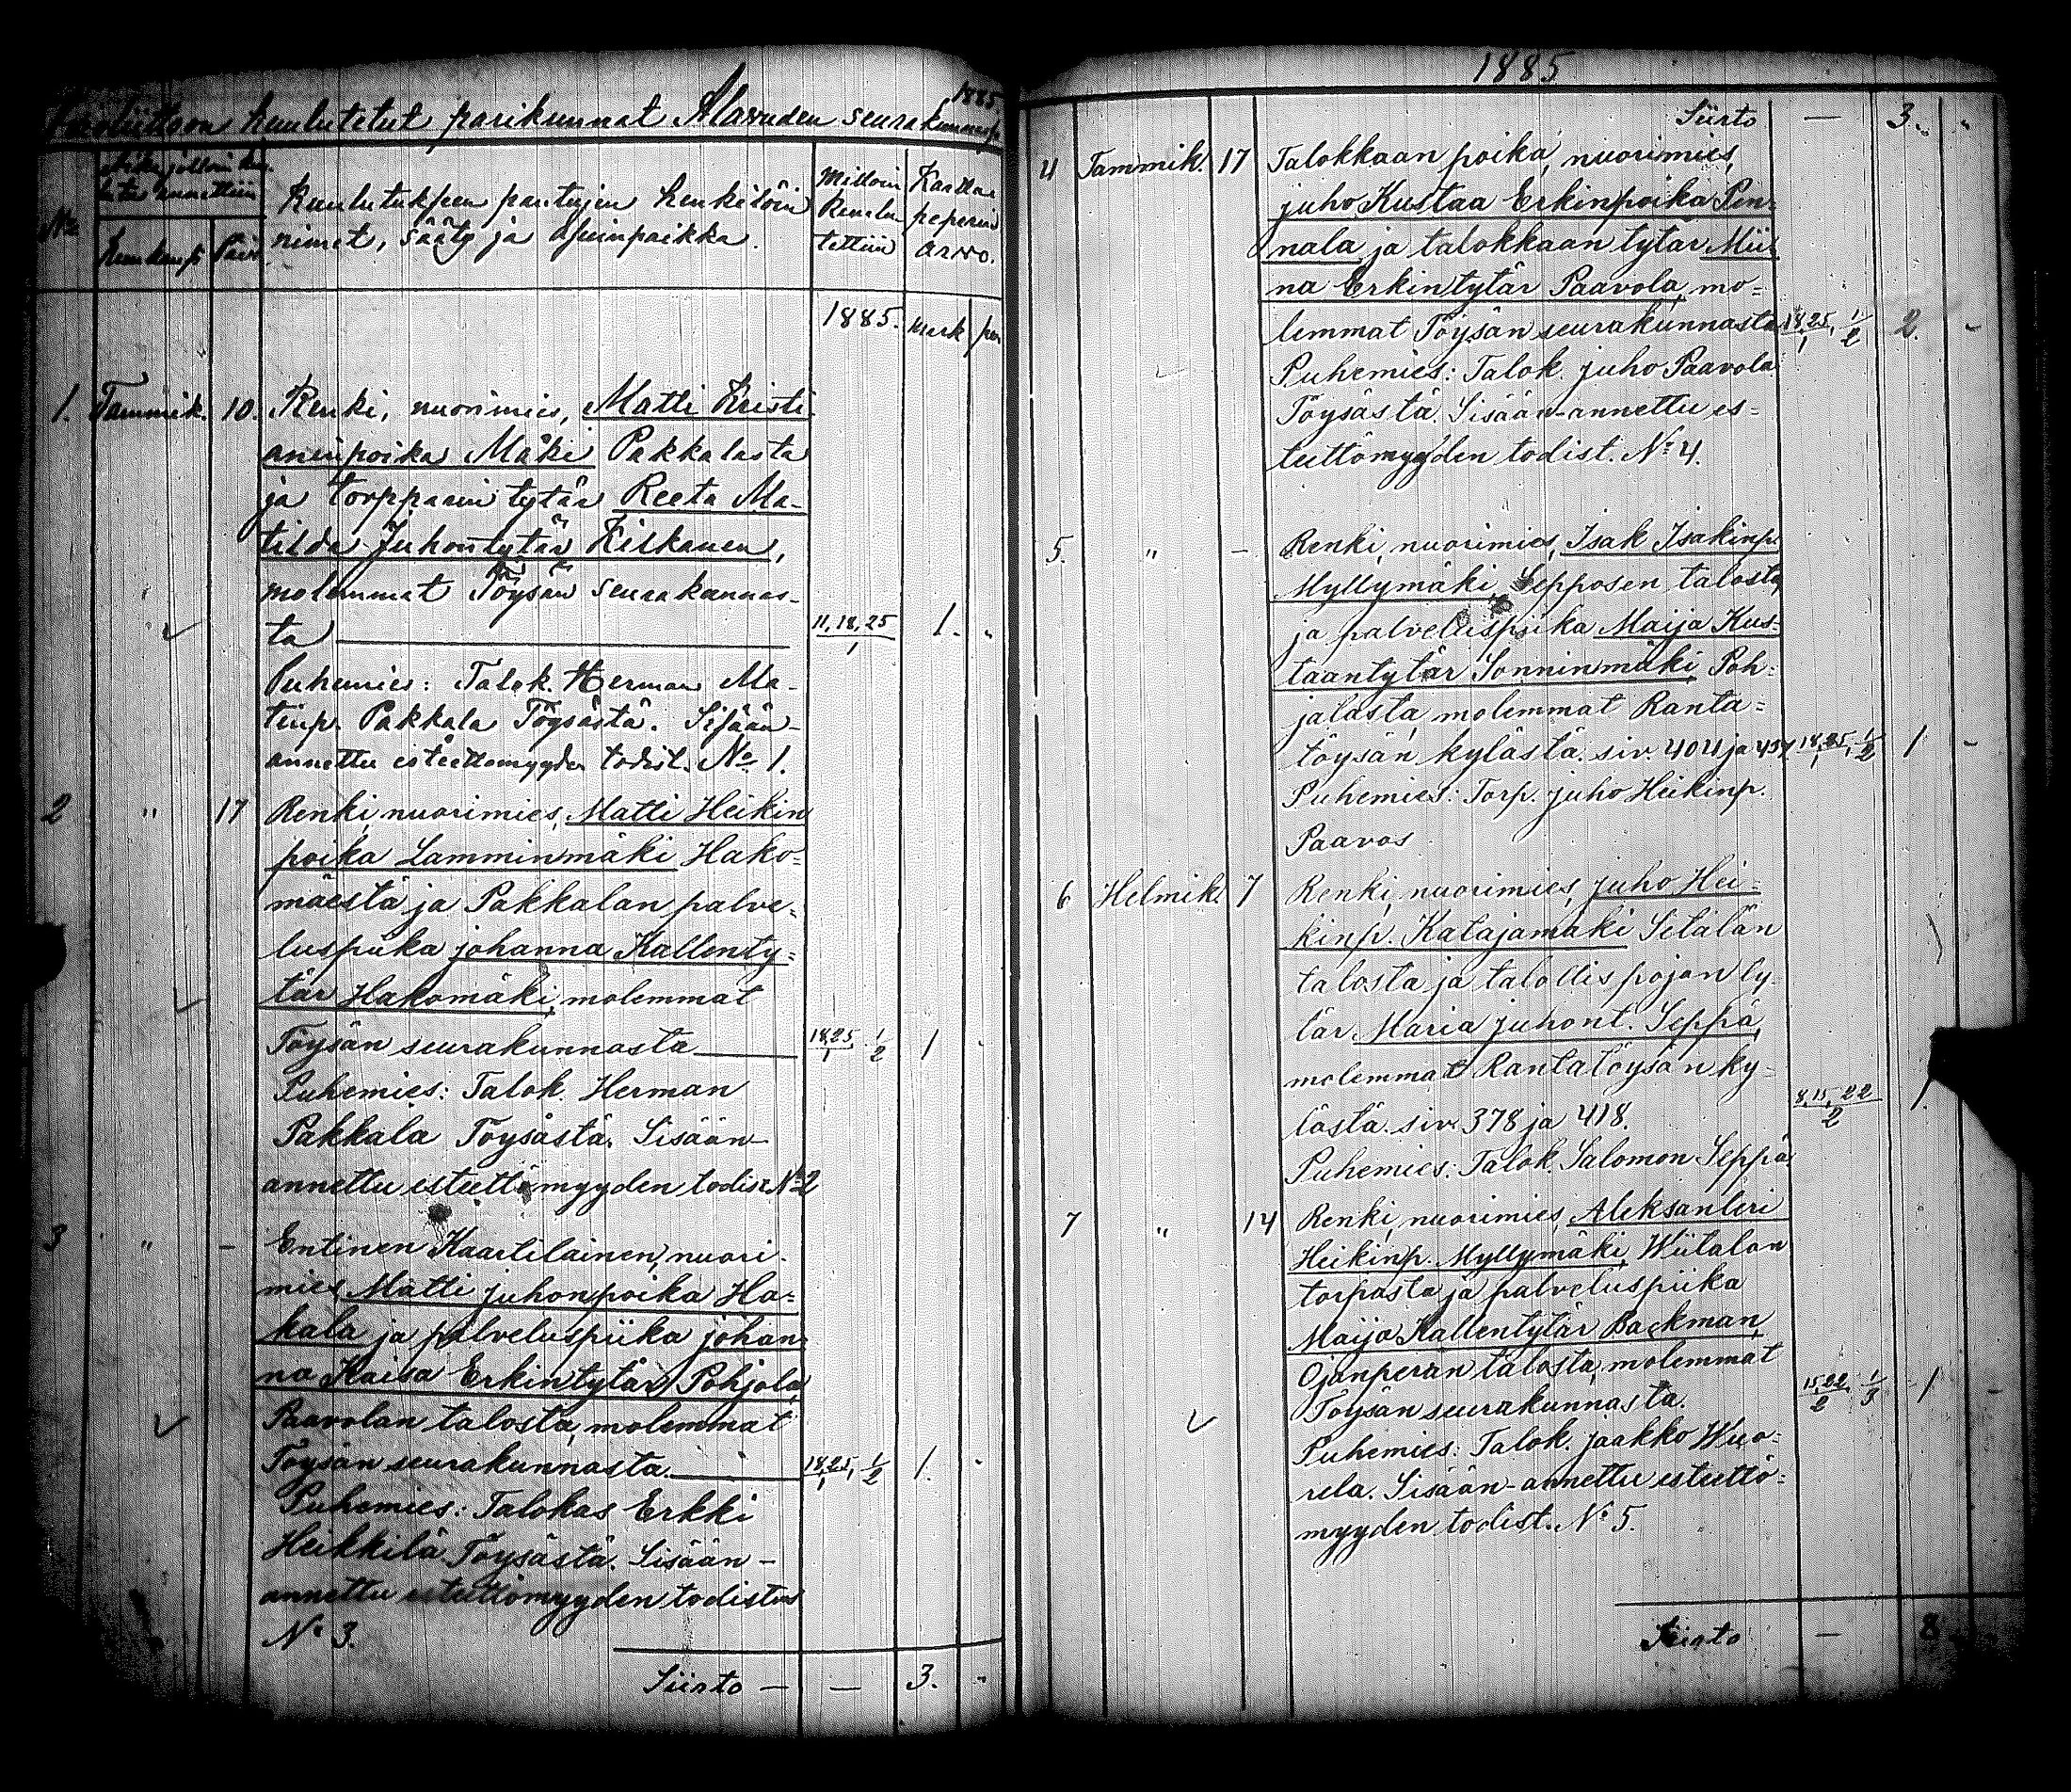 1885
kuulutetut parikunnat Alavuden seurakunnassa
No
Kuulutukseen pantujen henkilöin
nimet, sääty ja asuinpaikka.
Milloin
kuulu
tettiin
Karttap
peperin
arvo.
Päiv
1885. mark pen
1. Tammik. 10. Renki, nuorimies, Matti Kristi
aninpoika Mäki Pakkalasta
ja torpparin tytär Reeta Ma-
tilda Juhontytär Kiskanen,
molemmat Töysän seurakunnas-
ta 11, 18, 25/1 1. "
Puhemies: Talok. Herman Ma-
tinp. Pakkala Töysästä. Sisään-
annettu esteettomyyden todist. No 1.
2 " 17 Renki, nuorimies, Matti Heikin
poika Lamminmäki Hako=
mäestä ja Pakkalan palve=
luspiika johanna Kallenty=
tär Hakomäki, molemmat
Töysän seurakunnasta 18,25/1, 1/2 1 "
Puhemies: Talok. Herman
Pakkala Töysästä. Sisään-
annettu esteettömyyden todist No 2
3 " - Entinen Kaartilainen, nuori-
mies, Matti juhonpoika Ha=
kala ja palveluspiika johan=
na Kaisa Erkintytär Pohjola,
Paavolan talosta, molemmat
Töysän seurakunnasta. 18,25/1, 1/2 1. "
Puhemies: Talokas Erkki
Heikkilä Töysästä. Sisään-
annettu esteettömyyden todistus
No 3.
Siirto — — 3. "
1885
Siirto — 3. "
4 Tammik. 17 Talokkaan poika, nuorimies,
juho Kustaa Erkinpoika Pen=
nala ja talokkaan tytar Mii=
na Erkintytär Paavola, mo=
lemmat Töysän seurakunnasta 18,25/1, 1/2 2. -
Puhemies: Talok. juho Paavola
Töysästä. Sisään-annettu es=
teettömyyden todist. No 4.
5. " - Renki, nuorimies, Isak Isakinp.
Myllymäki, Sepposen talosta,
ja palveluspiika Maija Kus=
taantytär Sonninmäki, Poh=
jalasta, molemmat Ranta=
töysän kylästä. siv. 404 ja 457. 18,25/1, 1/2 1 -
Puhemies: Torp. juho Heikinp.
Paavos
6 Helmik. 7 Renki, nuorimies, juho Hei=
kinp. Katajamäki Setälän
talosta ja talollis pojan ty=
tär Maria juhont. Seppä,
molemmat Rantatöysän ky=
lästä. siv. 378 ja 418. 8,15,22/2 1.
Puhemies: Talok. Salomon Seppä.
7 " 14 Renki, nuorimies, Aleksanteri
Heikinp. Myllymäki, Wiitalan
torpasta ja palveluspiika
Maija Kallentytär Backman,
Ojanperän talosta, molemmat
Töysän seurakunnasta. 15,22/2, 1/3 1 -
Puhemies: Talok. jaakko Wuo=
rela. Sisään-annettu esteettö=
myyden todist. No 5.
Siirto — 8